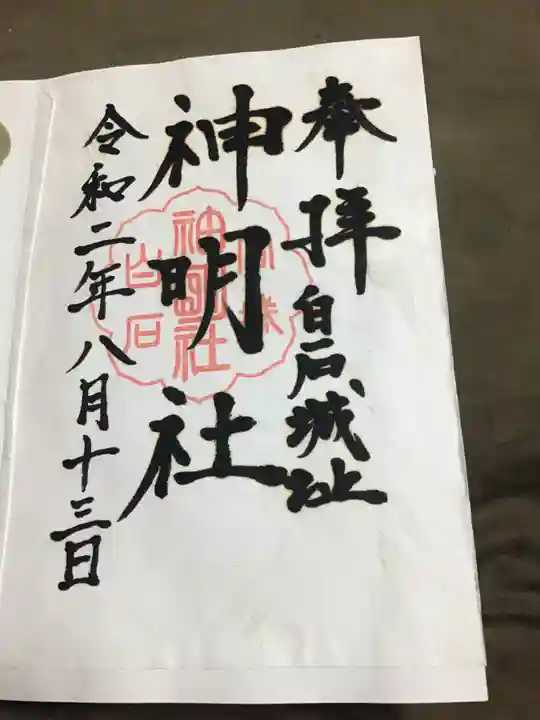 奉拝
白石城址
神明社
神明社
白石
令和二年八月十三日